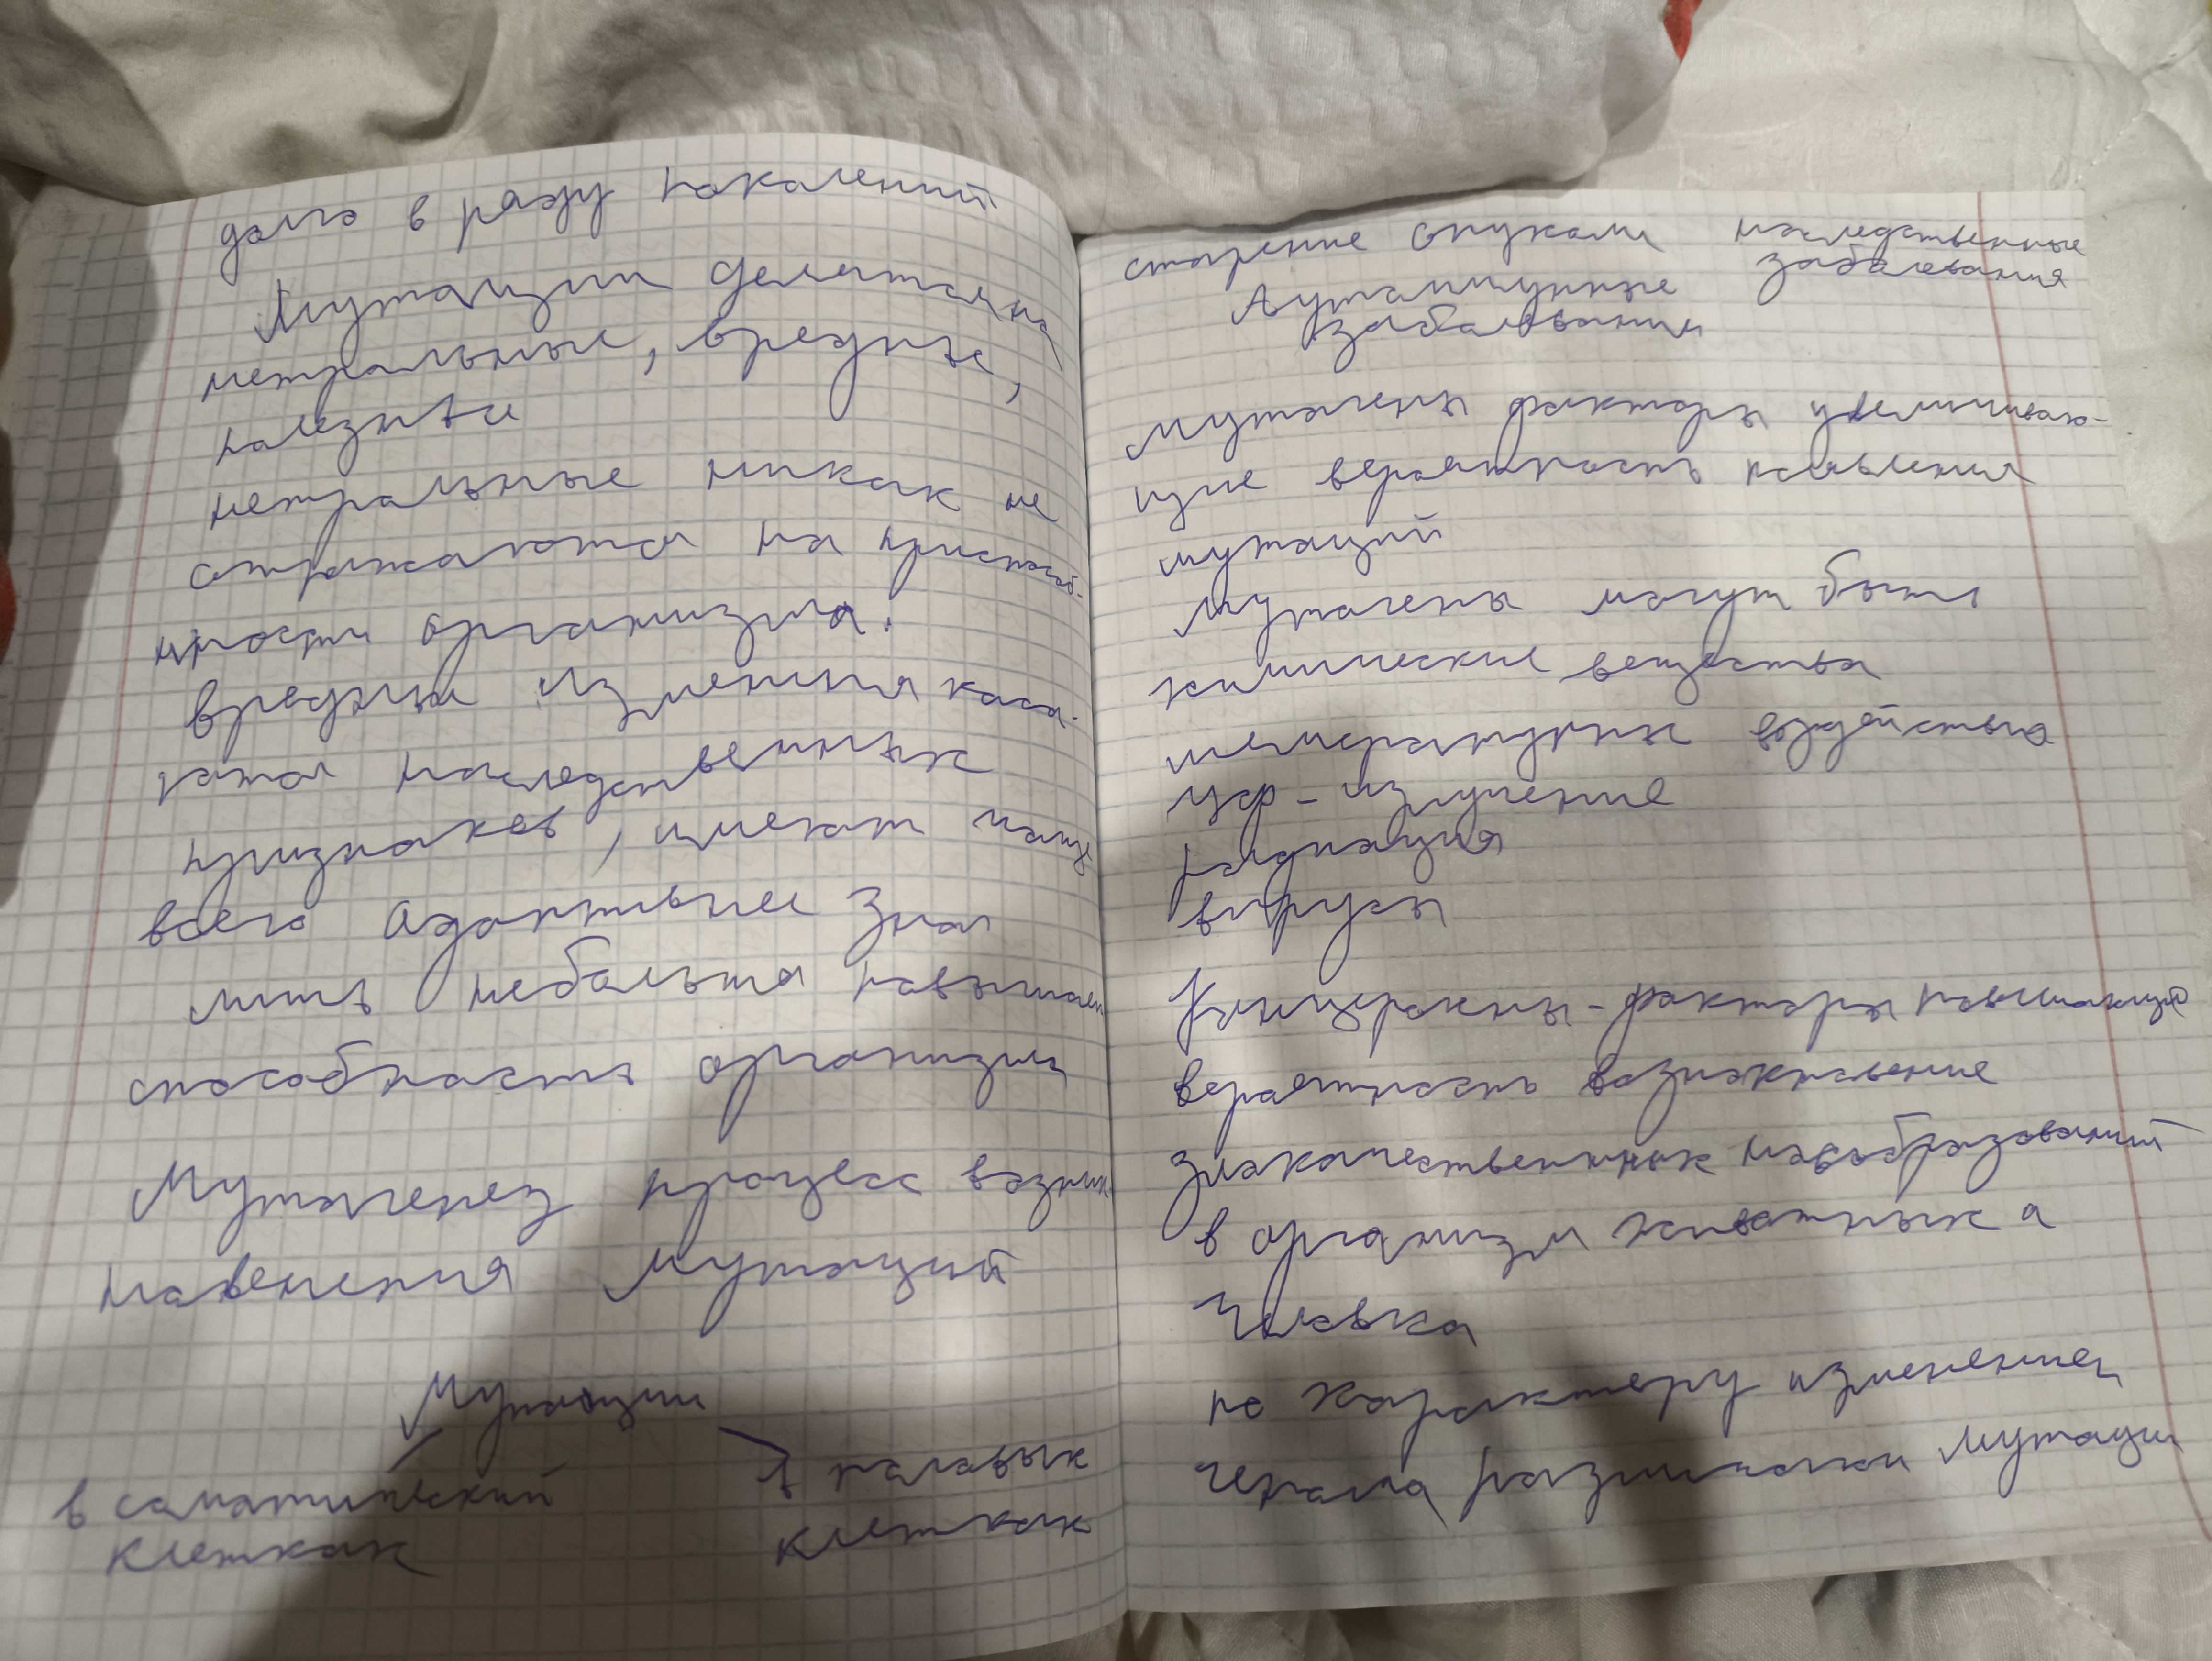 долго в ряду поколений
Мутации делятся на
нетральные, вредные,
полезные
нетральные никак не
отражаются на приспособ-
нности организма.
вредные изменения каса-
ются наследственных
признаков, имеют чаще
всего адоптивные зна
лишь небольша повышает
способность организм
Мутагенез процесс возник
новенения мутаций
Мутации
в соматический
клетках
в половых
клетках
старение опухоли наследственные
заболевания
Аутоиммунные
заболевании
мутагены факторы увеличиваю-
щие вероятность появления
мутаций
Мутагены могут быть
химические вещества
температурны воздействия
УФ-излучение
радиация
вирусы
Канцерогены - факторы повышающие
вероятность возникновение
злокачественных новобразований
в организм животных а
человека
по характеру изменение
генома различают мутации